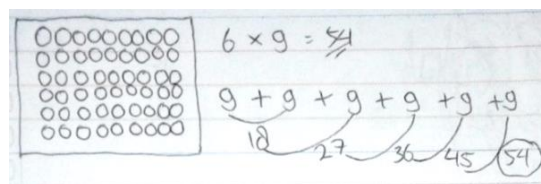 6 × 9 = 54
9 + 9 + 9 + 9 + 9 + 9
18 27 36 45 54